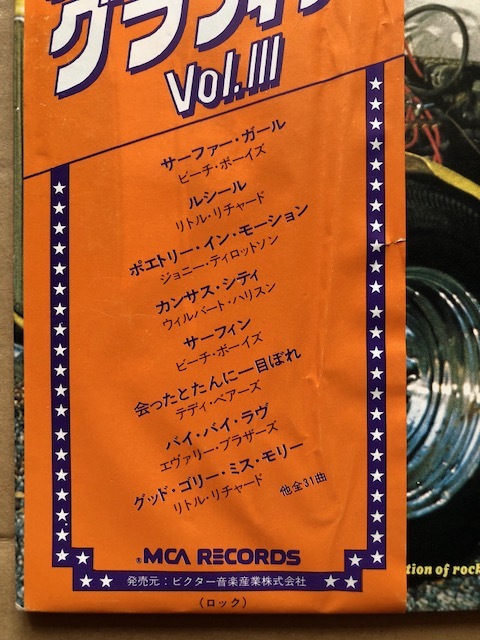 グラフィ
Vol.III
サーファー・ガール
ビーチ・ボーイズ
ルシール
リトル・リチャード
ポエトリー・イン・モーション
ジョニー・ティロットソン
カンサス・シティ
ウィルバート・ハリスン
サーフィン
ビーチ・ボーイズ
会ったとたんに一目ぼれ
テディ・ベアーズ
バイ・バイ・ラヴ
エヴァリー・ブラザーズ
グッド・ゴリー・ミス・モリー
リトル・リチャード
他全31曲
®MCA RECORDS
発売元：ビクター音楽産業株式会社
(ロック)
tion of rock